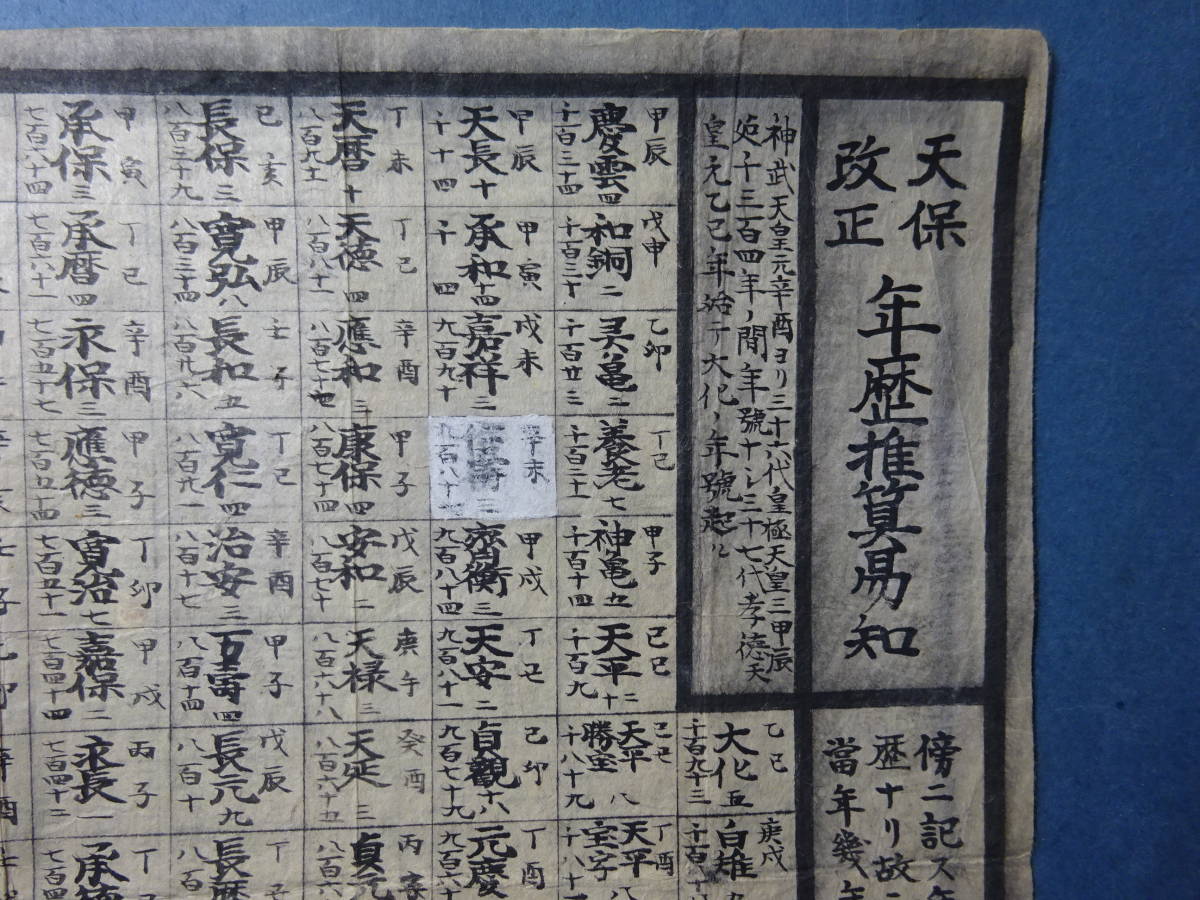 天保
改正
年歴推算易知
傍ニ記ス年
歴ナリ故ニ
當年幾年
神武天皇元辛酉ヨリ三十六代皇極天皇三甲辰
迄千三百四年ノ間年號ナシ三十七代孝徳天
皇元乙巳年始テ大化ノ年號起ル
乙巳
大化五
千百九十三
庚戌
白雉
甲辰
慶雲四
千百三十四
戊申
和銅二
千百三十
乙卯
㚑亀二
千百廿三
丁巳
養老七
千百二十一
甲子
神亀五
千百十四
己巳
天平二十
千百九
己丑
天平
勝宝八
千八十九
丁酉
天平
宝字八
千八十一
甲辰
天長十
千十四
甲寅
承和十四
千四
戊未
嘉祥三
九百九十
辛未
仁壽三
九百八十七
甲戌
齊衡三
九百八十四
丁丑
天安二
九百八十一
己卯
貞觀十八
九百七十九
丁酉
元慶
九百六十
丁未
天暦十
八百九十一
丁巳
天徳四
八百八十一
辛酉
應和三
八百七十七
甲子
康保四
八百七十四
戊辰
安和二
八百七十
庚午
天禄三
八百六十八
癸酉
天延三
八百六十五
丙子
貞元
八百六
己亥
長保三
八百三十九
甲辰
寛弘八
八百三十四
壬子
長和五
八百廿六
丁巳
寛仁四
八百廿一
辛酉
治安三
八百十七
甲子
万壽四
八百十四
戊辰
長元九
八百十
丁
長暦
八百
甲寅
承保三
七百六十四
丁巳
承暦四
七百六十一
辛酉
永保三
七百五十七
甲子
應徳三
七百五十四
丁卯
寛治七
七百五十一
甲戌
嘉保二
七百四十四
丙子
永長一
七百四十二
丁
承徳
七百四